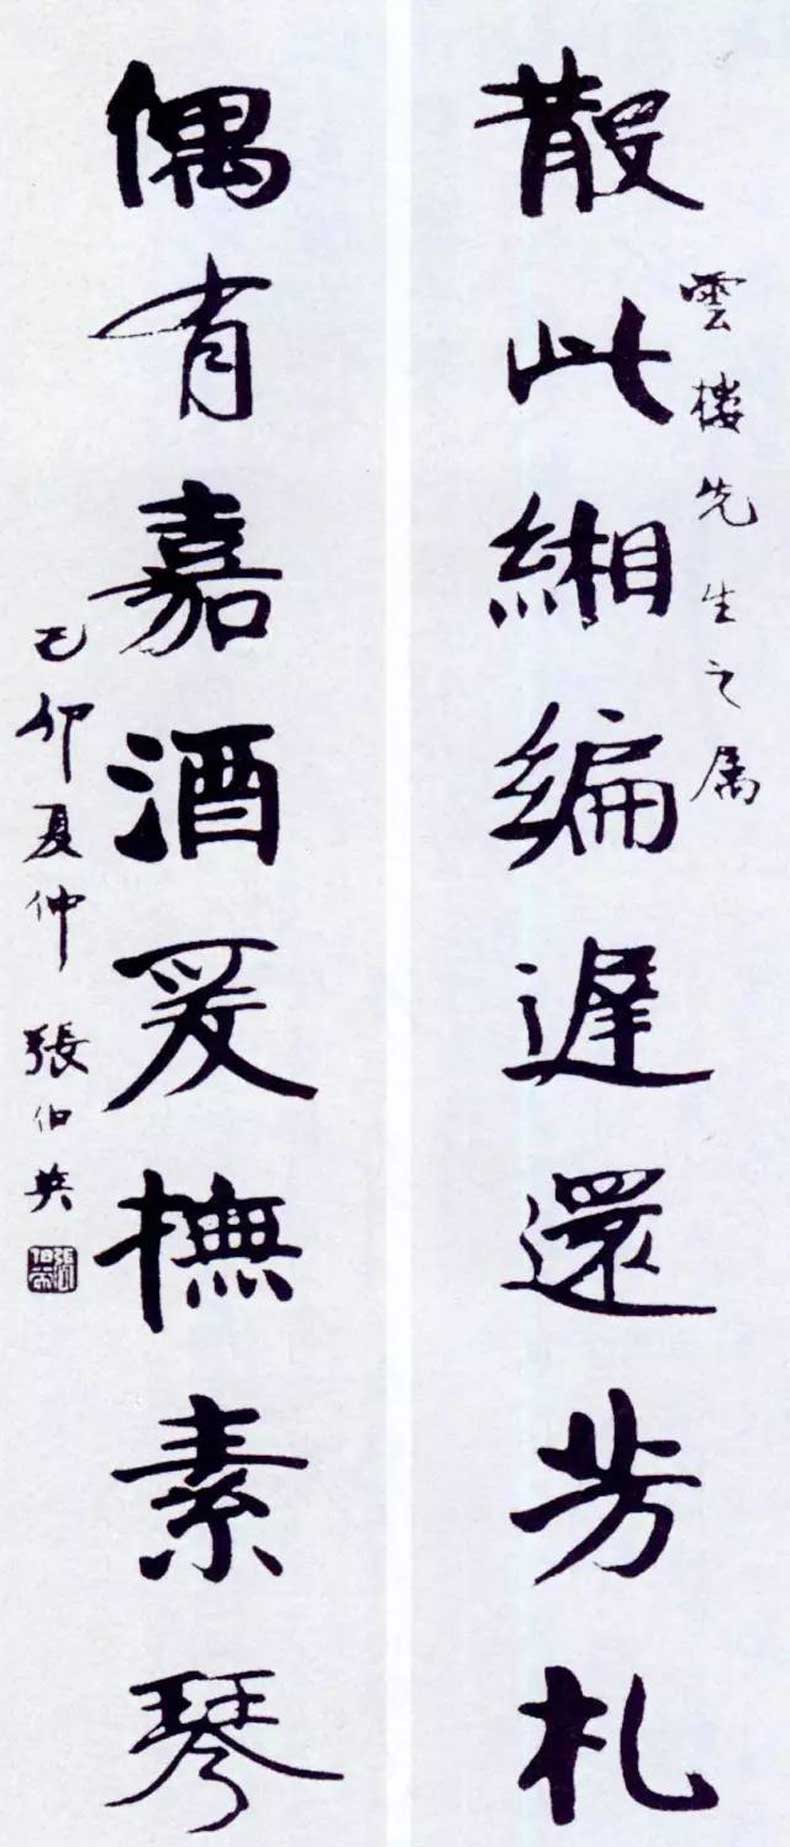 散此緗編遲還芳札
雲樓先生之属
偶有嘉酒爰撫素琴
己卯夏仲 張伯英
張伯英